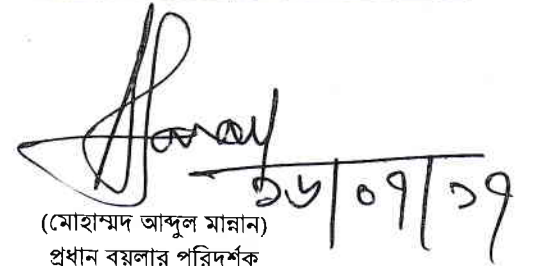 ১৬|০৭|১৭
(মোহাম্মদ আব্দুল মান্নান)
প্রধান বয়লার পরিদর্শক